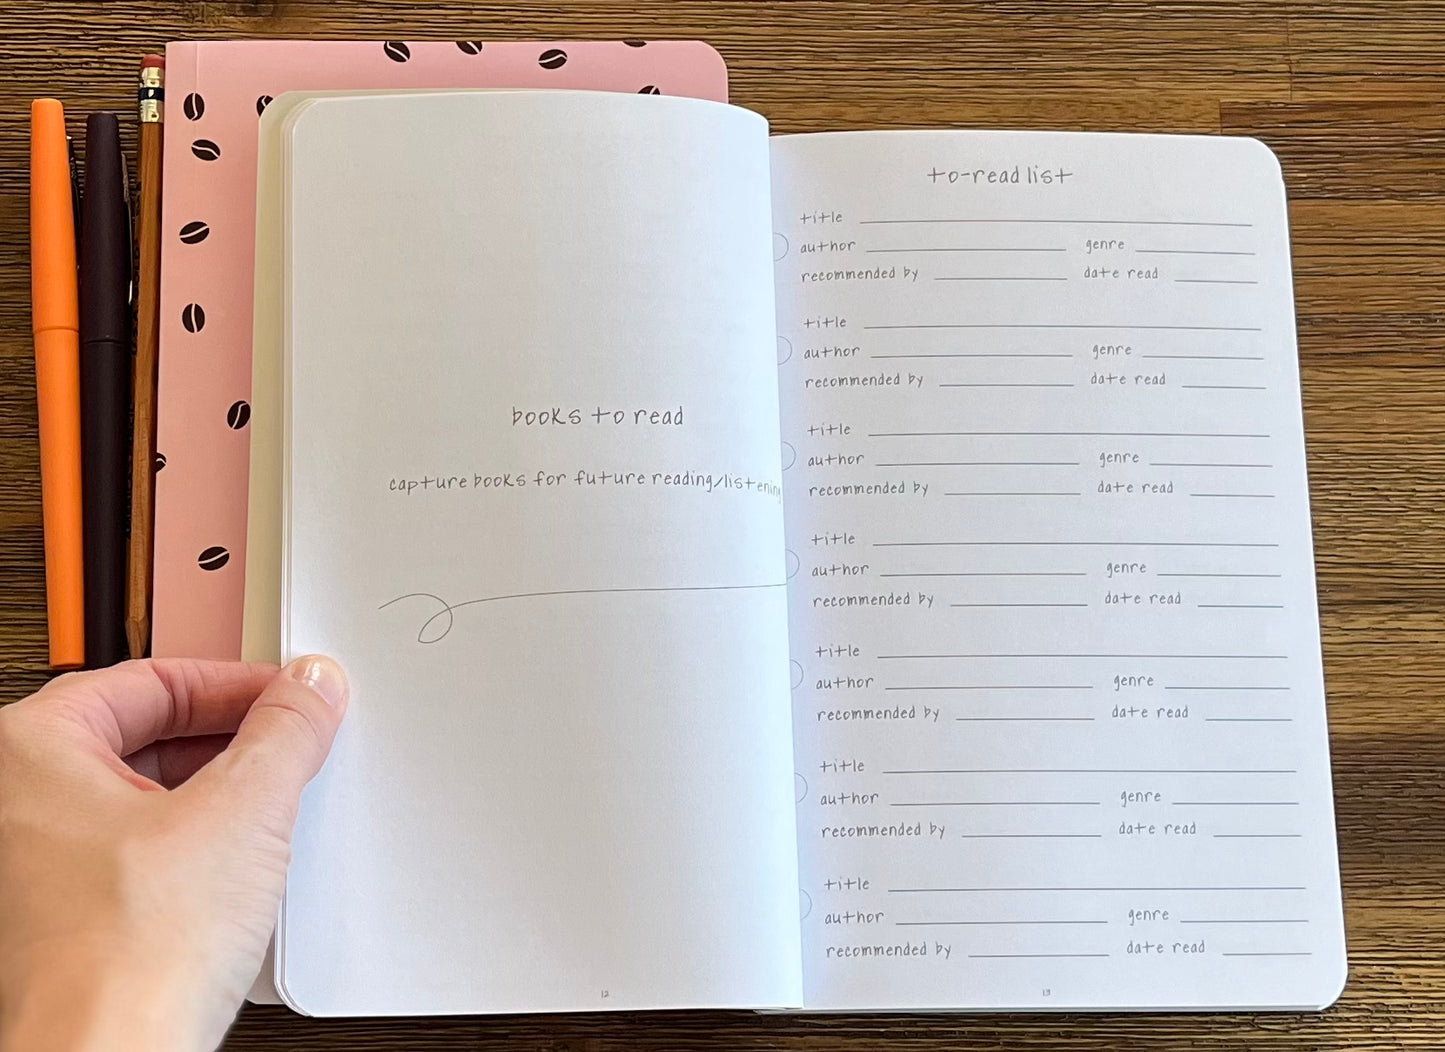 books to read
capture books for future reading/listening
12
to-read list
title
author genre
recommended by date read
title
author genre
recommended by date read
title
author genre
recommended by date read
title
author genre
recommended by date read
title
author genre
recommended by date read
title
author genre
recommended by date read
title
author genre
recommended by date read
13